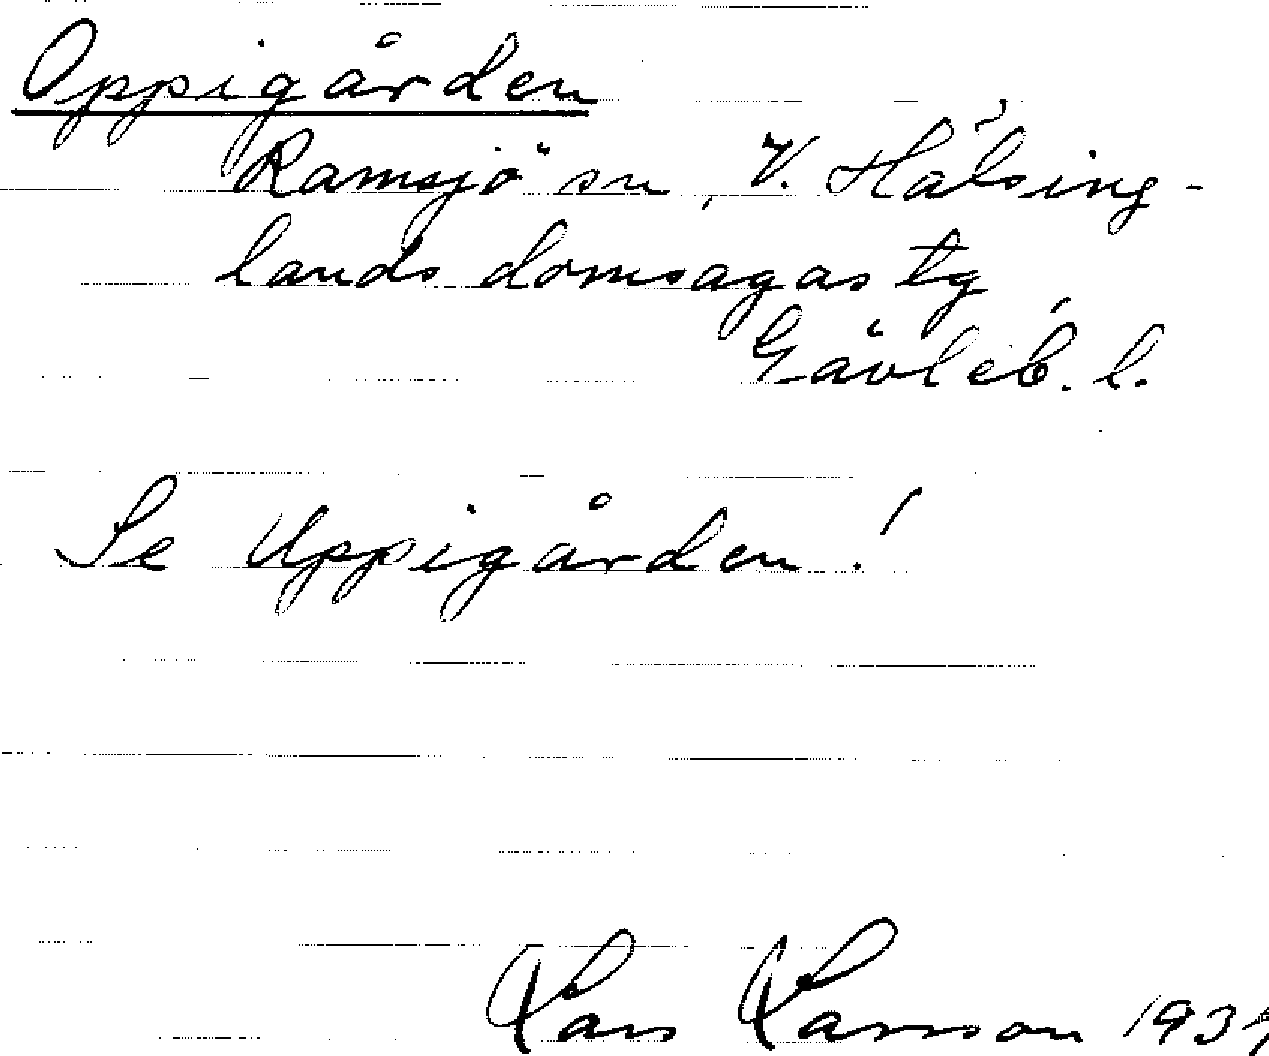 Oppigården
Ramsjö sn, V. Hälsing-
lands domsagas tg
Gävleb. l.
Se Uppigården!
Lars Larsson